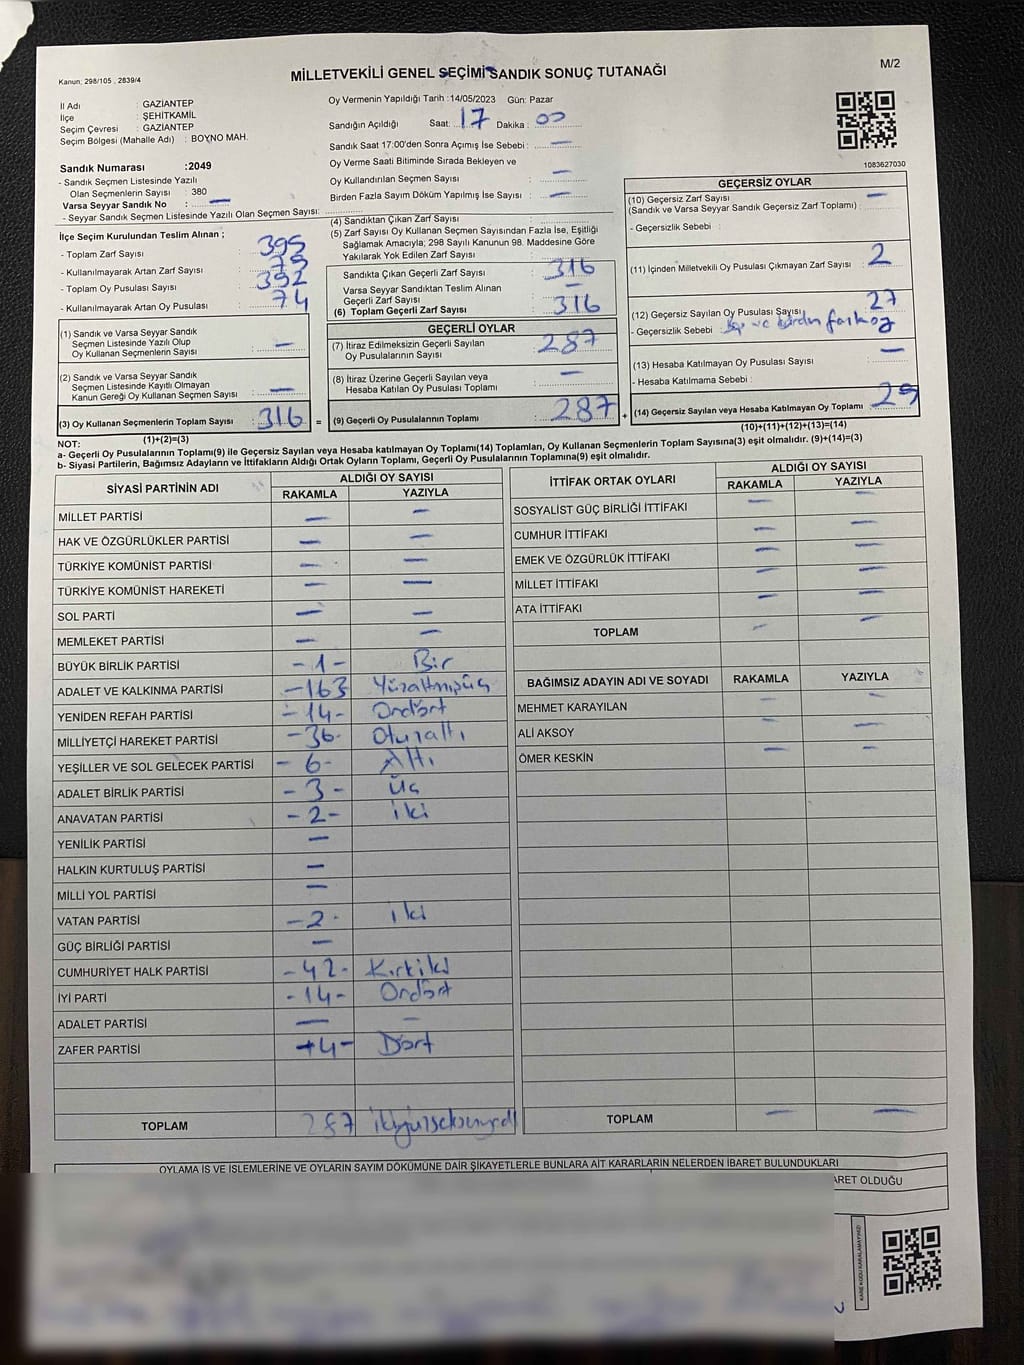 Kanun: 298/105 , 2839/4
MİLLETVEKİLİ GENEL SEÇİMİ SANDIK SONUÇ TUTANAĞI
M/2
İl Adı : GAZİANTEP
İlçe : ŞEHİTKAMİL
Seçim Çevresi : GAZİANTEP
Seçim Bölgesi (Mahalle Adı) : BOYNO MAH.
Sandık Numarası :2049
- Sandık Seçmen Listesinde Yazılı
Olan Seçmenlerin Sayısı : 380
Varsa Seyyar Sandık No : —
- Seyyar Sandık Seçmen Listesinde Yazılı Olan Seçmen Sayısı:
Oy Vermenin Yapıldığı Tarih :14/05/2023 Gün: Pazar
Sandığın Açıldığı Saat: 17 Dakika : 00
Sandık Saat 17:00'den Sonra Açımış İse Sebebi : —
Oy Verme Saati Bitiminde Sırada Bekleyen ve
Oy Kullandırılan Seçmen Sayısı : —
Birden Fazla Sayım Döküm Yapılmış İse Sayısı : —
1083627030
İlçe Seçim Kurulundan Teslim Alınan ;
- Toplam Zarf Sayısı : 395
- Kullanılmayarak Artan Zarf Sayısı : 79
- Toplam Oy Pusulası Sayısı : 392
- Kullanılmayarak Artan Oy Pusulası : 74
(1) Sandık ve Varsa Seyyar Sandık
Seçmen Listesinde Yazılı Olup
Oy Kullanan Seçmenlerin Sayısı : —
(2) Sandık ve Varsa Seyyar Sandık
Seçmen Listesinde Kayıtlı Olmayan
Kanun Gereği Oy Kullanan Seçmen Sayısı : —
(3) Oy Kullanan Seçmenlerin Toplam Sayısı : 316 =
(1)+(2)=(3)
(4) Sandıktan Çıkan Zarf Sayısı :
(5) Zarf Sayısı Oy Kullanan Seçmen Sayısından Fazla İse, Eşitliği
Sağlamak Amacıyla, 298 Sayılı Kanunun 98. Maddesine Göre
Yakılarak Yok Edilen Zarf Sayısı :
Sandıkta Çıkan Geçerli Zarf Sayısı : 316
Varsa Seyyar Sandıktan Teslim Alınan
Geçerli Zarf Sayısı : —
(6) Toplam Geçerli Zarf Sayısı : 316
GEÇERLİ OYLAR
(7) İtiraz Edilmeksizin Geçerli Sayılan
Oy Pusulalarının Sayısı : 287
(8) İtiraz Üzerine Geçerli Sayılan veya
Hesaba Katılan Oy Pusulası Toplamı : —
(9) Geçerli Oy Pusulalarının Toplamı : 287 +
GEÇERSİZ OYLAR
(10) Geçersiz Zarf Sayısı : —
(Sandık ve Varsa Seyyar Sandık Geçersiz Zarf Toplamı)
- Geçersizlik Sebebi :
(11) İçinden Milletvekili Oy Pusulası Çıkmayan Zarf Sayısı : 2
(12) Geçersiz Sayılan Oy Pusulası Sayısı : 27
- Geçersizlik Sebebi : ve birden
(13) Hesaba Katılmayan Oy Pusulası Sayısı : —
- Hesaba Katılmama Sebebi :
(14) Geçersiz Sayılan veya Hesaba Katılmayan Oy Toplamı : 29
(10)+(11)+(12)+(13)=(14)
NOT:
a- Geçerli Oy Pusulalarının Toplamı(9) ile Geçersiz Sayılan veya Hesaba katılmayan Oy Toplamı(14) Toplamları, Oy Kullanan Seçmenlerin Toplam Sayısına(3) eşit olmalıdır. (9)+(14)=(3)
b- Siyasi Partilerin, Bağımsız Adayların ve İttifakların Aldığı Ortak Oyların Toplamı, Geçerli Oy Pusulalarının Toplamına(9) eşit olmalıdır.
SİYASİ PARTİNİN ADI ALDIĞI OY SAYISI
RAKAMLA YAZIYLA
MİLLET PARTİSİ — —
HAK VE ÖZGÜRLÜKLER PARTİSİ — —
TÜRKİYE KOMÜNİST PARTİSİ — —
TÜRKİYE KOMÜNİST HAREKETİ — —
SOL PARTİ — —
MEMLEKET PARTİSİ — —
BÜYÜK BİRLİK PARTİSİ -1- Bir
ADALET VE KALKINMA PARTİSİ -163 Yüzaltmışüç
YENİDEN REFAH PARTİSİ -14- Ondört
MİLLİYETÇİ HAREKET PARTİSİ -36- Otuzaltı
YEŞİLLER VE SOL GELECEK PARTİSİ -6- Altı
ADALET BİRLİK PARTİSİ -3- Üç
ANAVATAN PARTİSİ -2- iki
YENİLİK PARTİSİ —
HALKIN KURTULUŞ PARTİSİ —
MİLLİ YOL PARTİSİ —
VATAN PARTİSİ -2- iki
GÜÇ BİRLİĞİ PARTİSİ —
CUMHURİYET HALK PARTİSİ -42- Kırkiki
İYİ PARTİ -14- Ondört
ADALET PARTİSİ — —
ZAFER PARTİSİ -4- Dört
TOPLAM 287 ikiyüzseksenyedi
İTTİFAK ORTAK OYLARI ALDIĞI OY SAYISI
RAKAMLA YAZIYLA
SOSYALİST GÜÇ BİRLİĞİ İTTİFAKI — —
CUMHUR İTTİFAKI — —
EMEK VE ÖZGÜRLÜK İTTİFAKI — —
MİLLET İTTİFAKI — —
ATA İTTİFAKI — —
TOPLAM — —
BAĞIMSIZ ADAYIN ADI VE SOYADI RAKAMLA YAZIYLA
MEHMET KARAYILAN — —
ALİ AKSOY — —
ÖMER KESKİN — —
TOPLAM — —
OYLAMA İŞ VE İŞLEMLERİNE VE OYLARIN SAYIM DÖKÜMÜNE DAİR ŞİKAYETLERLE BUNLARA AİT KARARLARIN NELERDEN İBARET BULUNDUKLARI
ARET OLDUĞU
KARE KODU KARALAMAYINIZ!